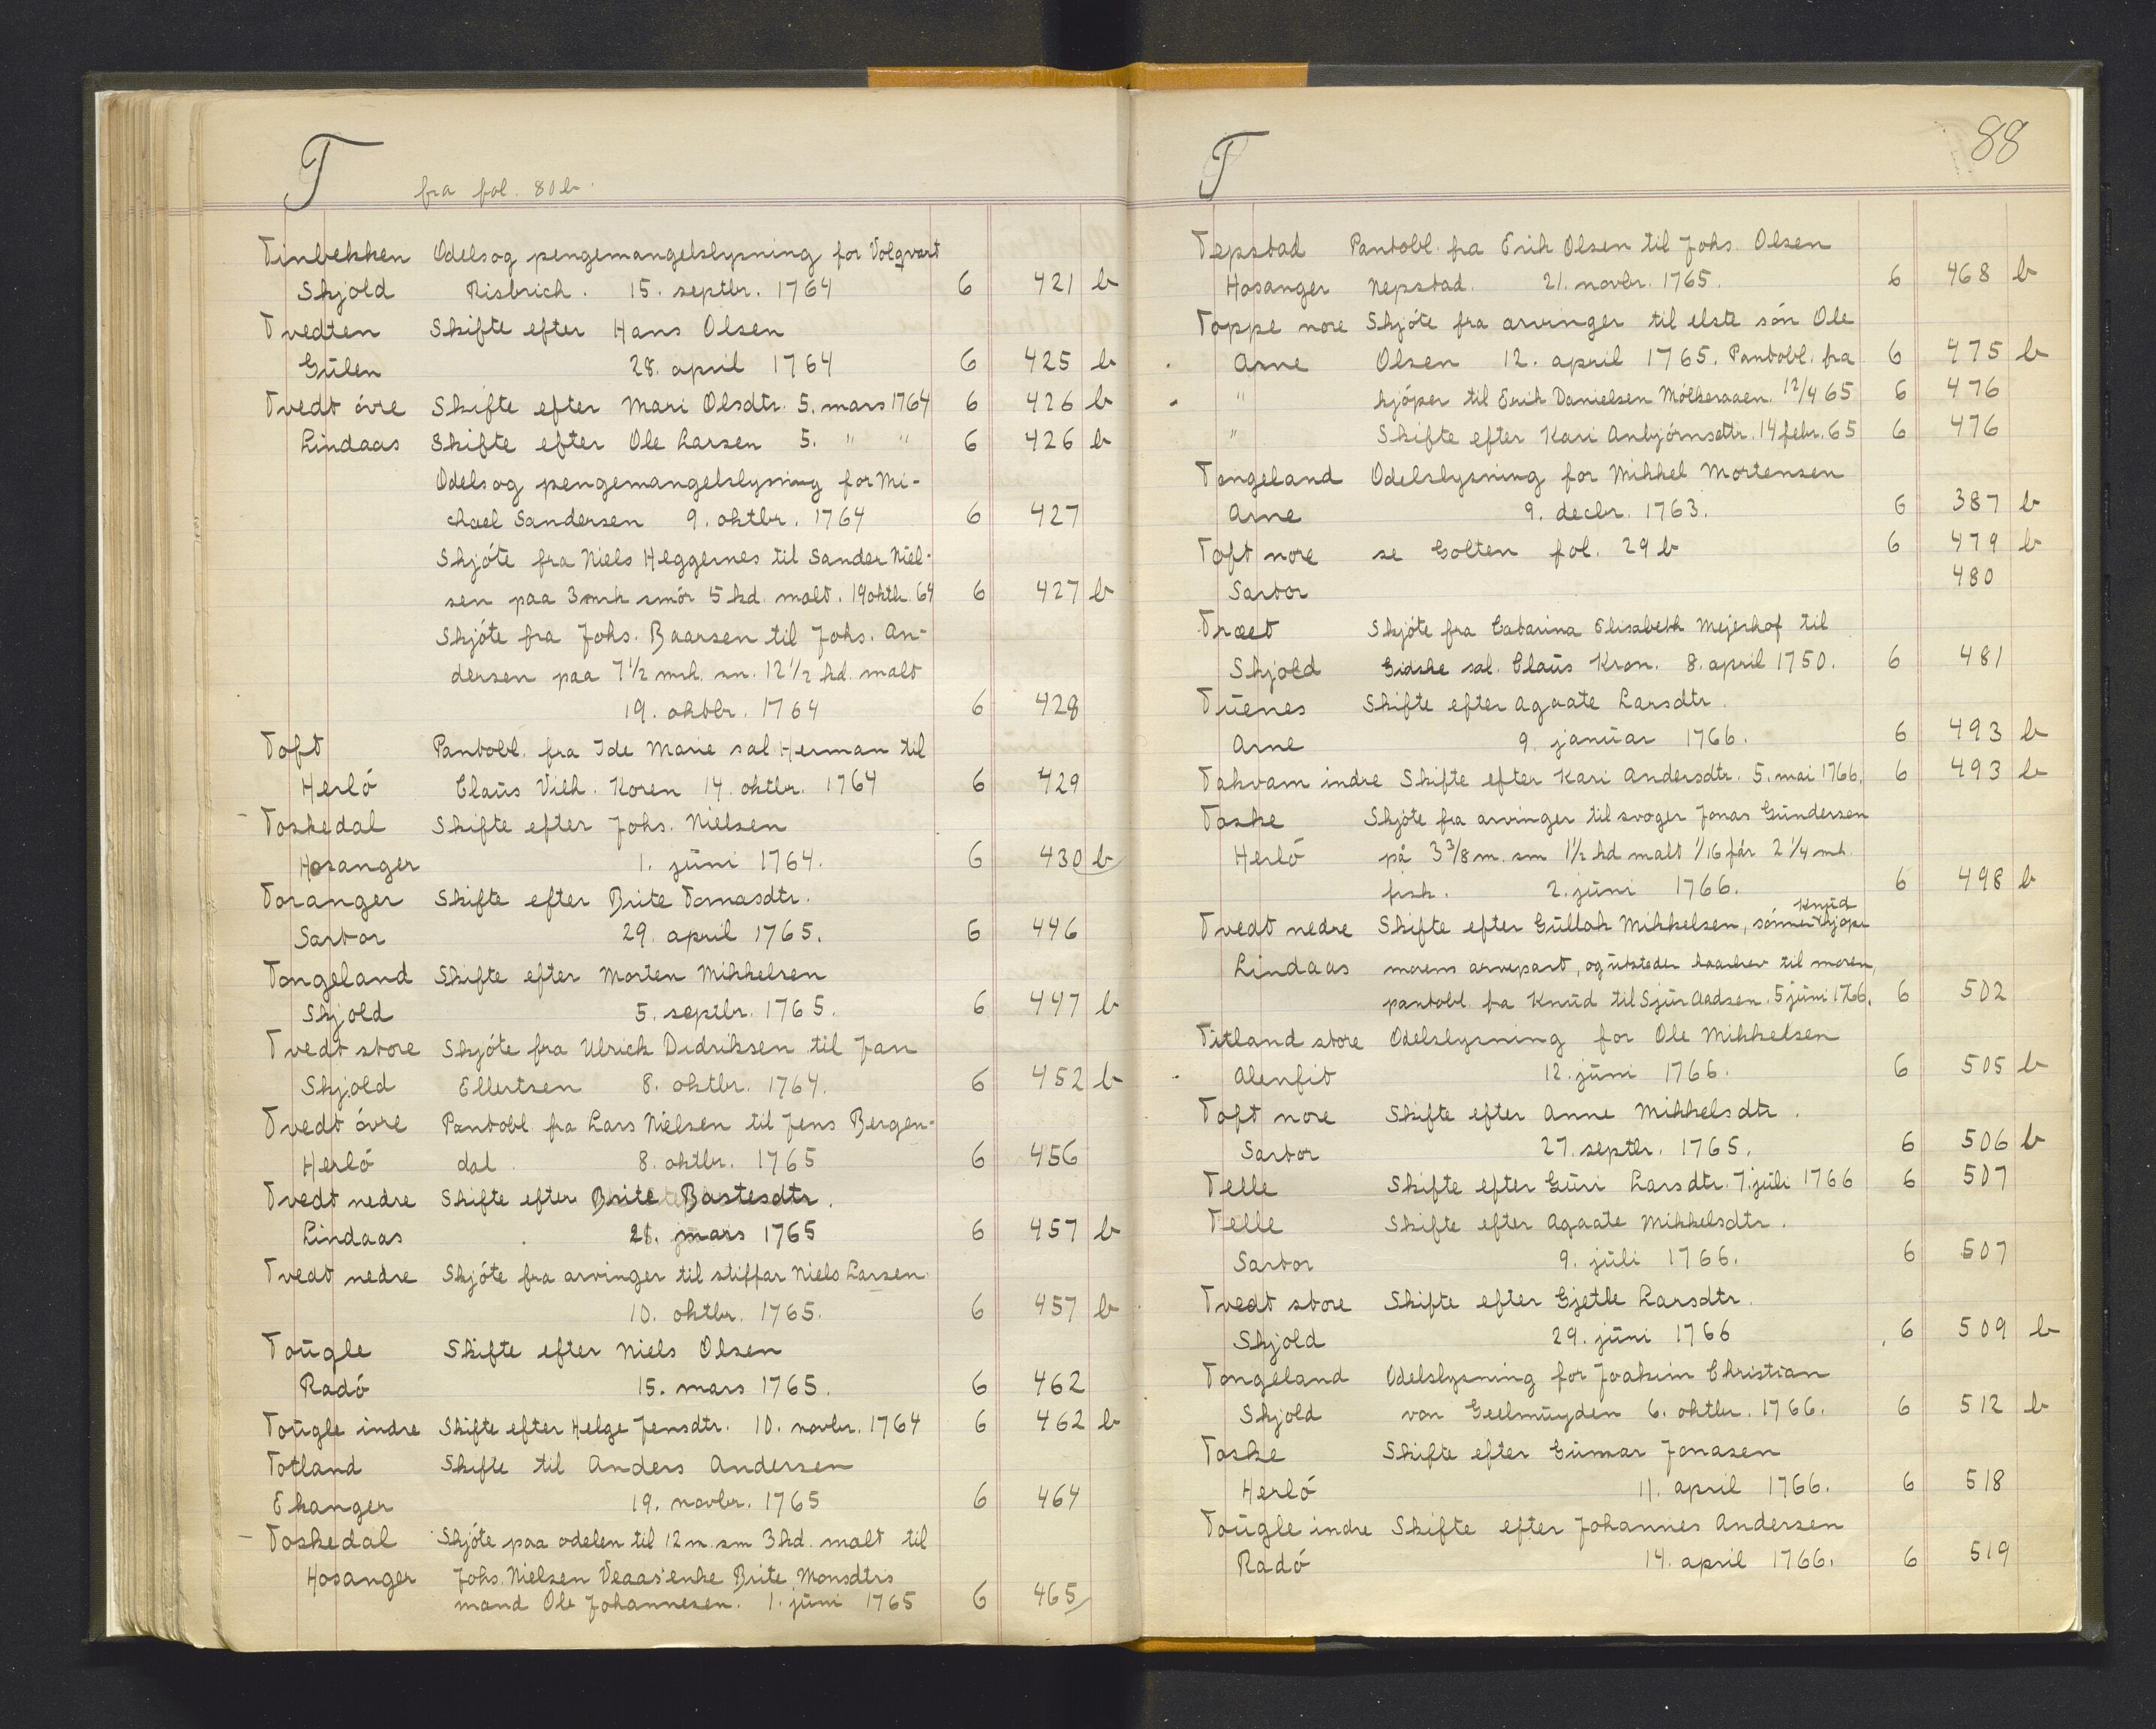 T fra fol. 80 b.
Tinbekken Odels og pengemangelslysning for Volqvart
Skjold Risbrich. 15. septbr. 1764 6 421 b
Tvedten Skifte efter Hans Olsen
Gulen 28. april 1764 6 425 b
Tvedt óvre Skifte efter Mari Olsdtr. 5. mars 1764 6 426 b
Lindaas Skifte efter Ole Larsen 5. " " 6 426 b
Odels og pengemangelslysning for Mi-
chael Sandersen 9. oktbr. 1764 6 427
Skjóte fra Niels Heggernes til Sander Niel-
sen paa 3 mrk smór 5 kd. malt. 19 oktb. 64 6 427 b
Skjóte fra Johs. Baarsen til Johs. An-
dersen paa 7 1/2 mrk. sm. 12 1/2 kd. malt
19. oktbr. 1764 6 428
Toft Pantobl. fra Ide Marie sal. Herman til
Herló Claus Vilh. Koren 14. oktbr. 1764 6 429
- Toskedal Skifte efter Johs. Nielsen
Hosanger 1. juni 1764. 6 430 b
Toranger Skifte efter Brite Tomasdtr.
Sartor 29. april 1765. 6 446
Tongeland Skifte efter Morten Mikkelsen
Skjold 5. septbr. 1765. 6 447 b
Tvedt store Skjóte fra Ulrick Didriksen til Jan
Skjold Ellertsen 8. oktbr. 1764. 6 452 b
Tvedt óvre Pantobl. fra Lars Nielsen til Jens Bergen-
Herló dal. 8. oktbr. 1765 6 456
Tvedt nedre Skifte efter Brite Bastesdtr.
Lindaas 28. mars 1765 6 457 b
Tvedt nedre Skjóte fra arvinger til stiffar Niels Larsen
10. oktbr. 1765. 6 457 b
Tougle Skifte efter Niels Olsen
Radó 15. mars 1765. 6 462
Tougle indre Skifte efter Helge Jensdtr. 10. novbr. 1764 6 462 b
Totland Skifte til Anders Andersen
Ekanger 19. novbr. 1765 6 464
- Toskedal Skjóte paa odelen til 12 m. sm 3 kd. malt til
Hosanger Johs. Nielsen Veaas' enke Brite Monsdtrs
mand Ole Johannesen. 1. juni 1765 6 465
T 88
Tepstad Pantobl. fra Erik Olsen til Johs. Olsen
Hosanger Nepstad. 21. novbr. 1765. 6 468 b
Toppe nore Skjóte fra arvinger til elste són Ole
Arne Olsen 12. april 1765. Pantobl. fra 6 475 b
" kjóper til Erik Danielsen Mólkeraaen. 12/4 65 6 476
" Skifte efter Kari Anbjórnsdtr. 14 febr. 65 6 476
Tongeland Odelslysning for Mikkel Mortensen
Arne 9. decbr. 1763. 6 387 b
Toft nore se Golten fol. 29 b 6 479 b
Sartor 480
Træet Skjóte fra Catarina Elisabeth Mejerhof til
Skjold Gidske sal. Claus Kron. 8. april 1750. 6 481
Tuenes Skifte efter Agaate Larsdtr.
Arne 9. januar 1766. 6 493 b
Takvam indre Skifte efter Kari Andersdtr. 5. mai 1766. 6 493 b
Toske Skjóte fra arvinger til svoger Jonas Gundersen
Herló på 3 3/8 m. sm 1 1/2 kd malt 1/16 får 2 1/4 mk.
fisk. 2. juni 1766. 6 498 b
Knud
Tvedt nedre Skifte efter Gullak Mikkelsen, sónnen kjóper
Lindaas morens arvepart, og utsteder kaarbrev til moren,
pantobl. fra Knud til Sjur Aadsen. 5 juni 1766. 6 502
Titland store Odelslysning for Ole Mikkelsen
Alenfit 12. juni 1766. 6 505 b
Toft nore Skifte efter Anne Mikkelsdtr.
Sartor 27. septbr. 1765. 6 506 b
Telle Skifte efter Guri Larsdtr. 7. juli 1766 6 507
Telle Skifte efter Agaate Mikkelsdtr.
Sartor 9. juli 1766. 6 507
Tvedt store Skifte efter Gjetle Larsdtr.
Skjold 29. juni 1766 6 509 b
Tongeland Odelslysning for Joakim Christian
Skjold von Geelmuyden 6. oktbr. 1766. 6 512 b
Toske Skifte efter Gunnar Jonasen
Herló 11. april 1766. 6 518
Tougle indre Skifte efter Johannes Andersen
Radó 14. april 1766. 6 519